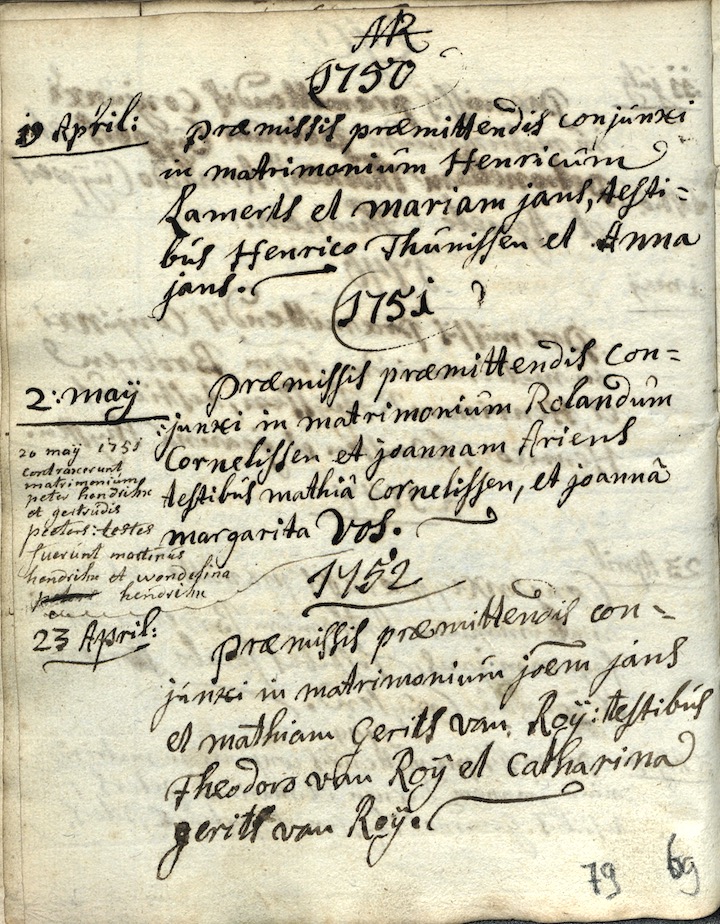 NR
1750
19 April:
Præmissis præmittendis conjúnxi
in matrimoniúm Henricúm
Lamerts et mariam jans, testi=
bús Henrico Thúnissen et Anna
jans.
1751
2: maÿ
Præmissis præmittendis con=
junxi in matrimoniúm Rolandúm
Cornelissen et joannam Ariens
testibús mathiâ Cornelissen, et joannâ
margarita Vos.
20 maÿ 1751
contraxerunt
matrimoniúm
peter hendrikx
et gertrúdis
peeters: testes
fuerúnt martinús
hendrikx et wendelina
hendrikx
1752
23 April:
Præmissis præmittendis con=
júnxi in matrimoniúm joem jáns
et mathiam Gerits van Roÿ: testibús
Theodoro van Roÿ et Catharina
gerits van Roÿ.
79 69